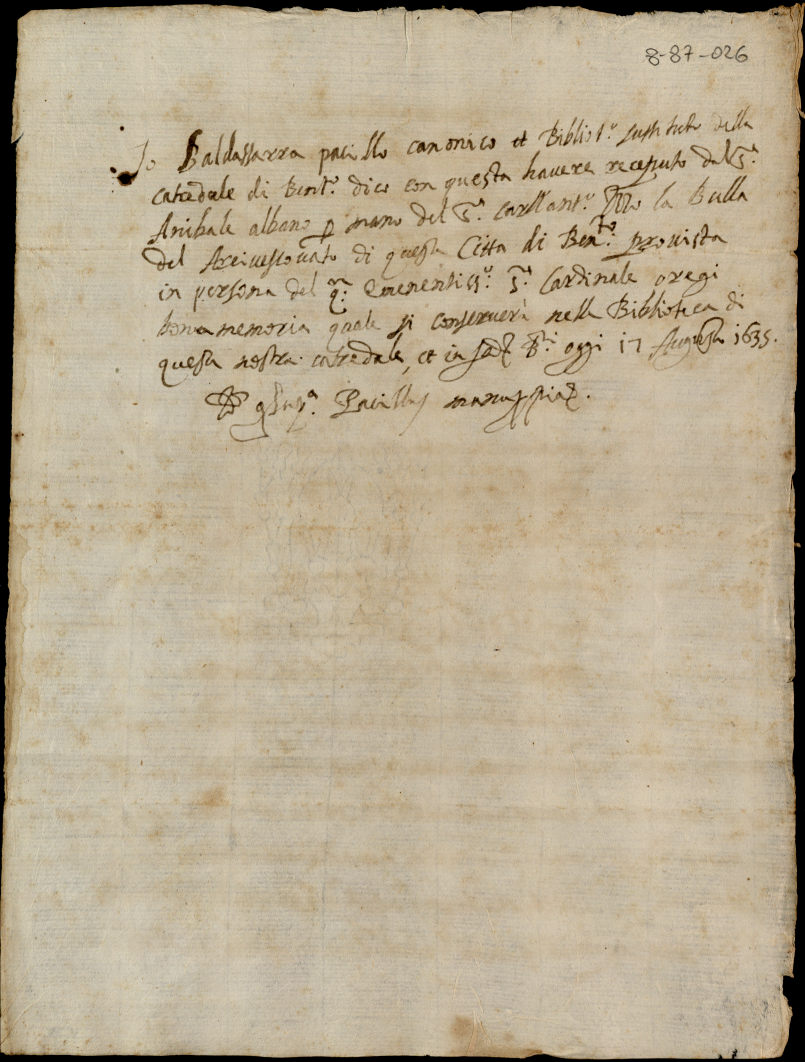 8-87-026
Io Baldassarra pacillo canonico et Bibliot.º sustituto della
catedale di Bent.º dico con questa havere receputo dal S.r
Anibale albano p mano del S.r la Bulla
del Arcivescovato di questa Citta di Ben.to provista
in persona del q.m Emenentiss.º S.r Cardinale oregi
bona memoria quale si conserverà nella Biblioteca di
questa nostra catedale, et in oggi 17 Augusto 1635.
Pacillus manupp.